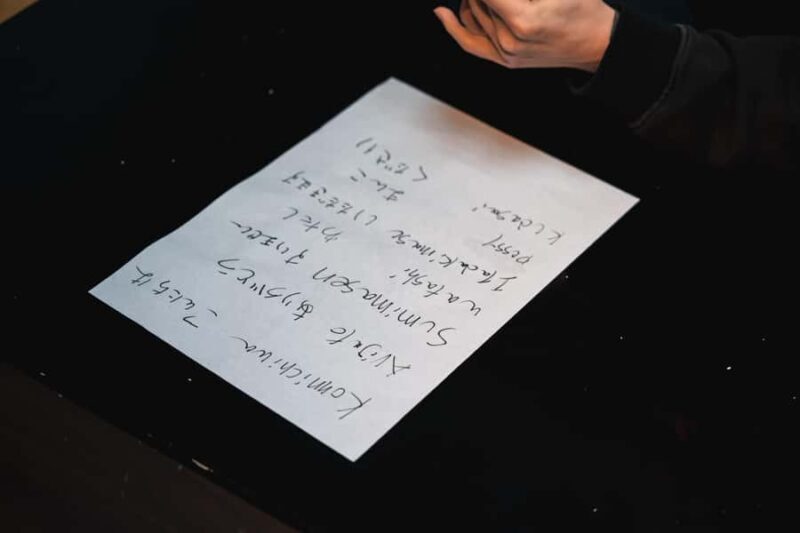 Konnichiwa こんにちは
Arigato ありがとう
Sumimasen すいません
watashi わたし
Itadakimase いただきます
pussy まんこ
kudasai ください